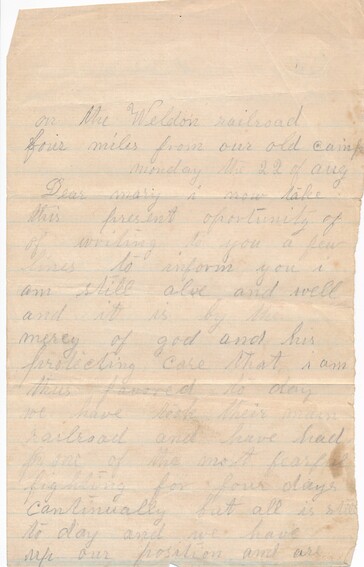 on the Weldon railroad
four miles from our old camp
monday the 22 of aug
Dear mary i now take
this present oportunity of
of writing to you a few
lines to inform you i
am still alve and well
and it is by the
mercy of god and his
protecting care that i am
thus favored to day
we have took their main
railroad and have had
of the most fearful
fighting for four days
continually but all is still
to day and we have
up our position and are